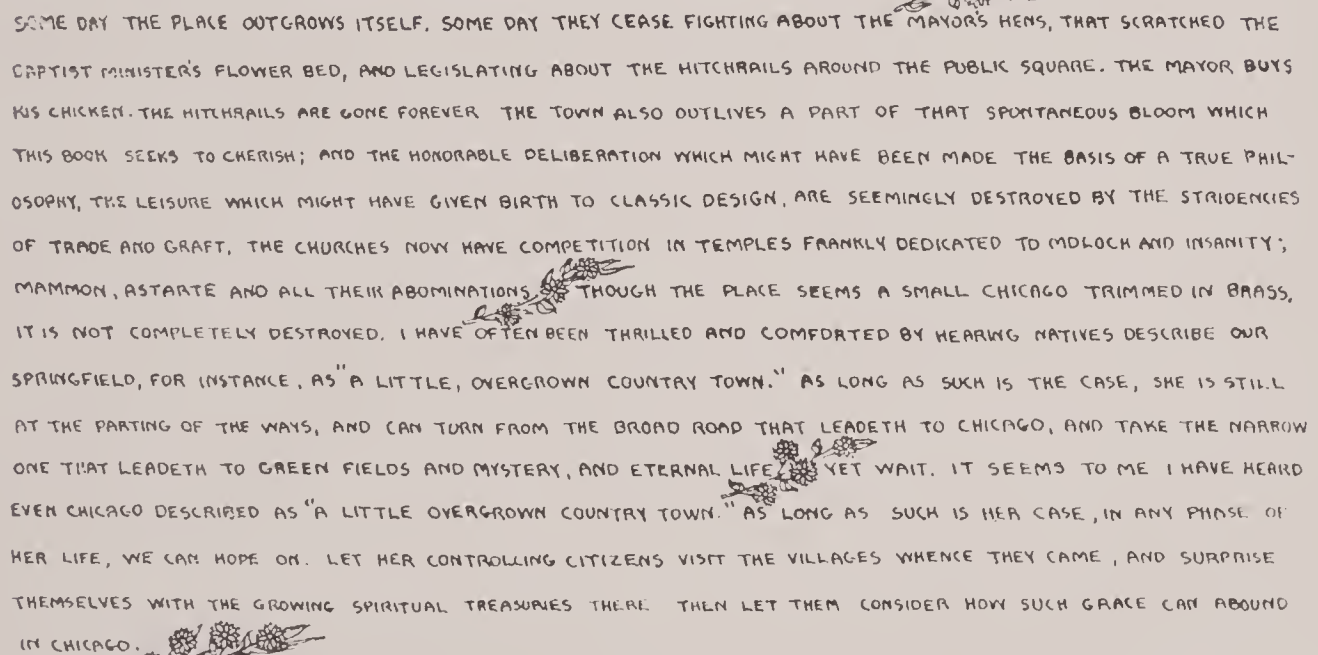 SOME DAY THE PLACE OUTGROWS ITSELF. SOME DAY THEY CEASE FIGHTING ABOUT THE MAYOR'S HENS, THAT SCRATCHED THE
BAPTIST MINISTER'S FLOWER BED, AND LEGISLATING ABOUT THE HITCHRAILS AROUND THE PUBLIC SQUARE. THE MAYOR BUYS
HIS CHICKEN. THE HITCHRAILS ARE GONE FOREVER THE TOWN ALSO OUTLIVES A PART OF THAT SPONTANEOUS BLOOM WHICH
THIS BOOK SEEKS TO CHERISH; AND THE HONORABLE DELIBERATION WHICH MIGHT HAVE BEEN MADE THE BASIS OF A TRUE PHIL-
OSOPHY, THE LEISURE WHICH MIGHT HAVE GIVEN BIRTH TO CLASSIC DESIGN, ARE SEEMINGLY DESTROYED BY THE STRIDENCIES
OF TRADE AND GRAFT, THE CHURCHES NOW HAVE COMPETITION IN TEMPLES FRANKLY DEDICATED TO MOLOCH AND INSANITY;
MAMMON, ASTARTE AND ALL THEIR ABOMINATIONS. THOUGH THE PLACE SEEMS A SMALL CHICAGO TRIMMED IN BRASS,
IT IS NOT COMPLETELY DESTROYED. I HAVE OFTEN BEEN THRILLED AND COMFORTED BY HEARING NATIVES DESCRIBE OUR
SPRINGFIELD, FOR INSTANCE, AS "A LITTLE, OVERGROWN COUNTRY TOWN." AS LONG AS SUCH IS THE CASE, SHE IS STILL
AT THE PARTING OF THE WAYS, AND CAN TURN FROM THE BROAD ROAD THAT LEADETH TO CHICAGO, AND TAKE THE NARROW
ONE THAT LEADETH TO GREEN FIELDS AND MYSTERY, AND ETERNAL LIFE. YET WAIT. IT SEEMS TO ME I HAVE HEARD
EVEN CHICAGO DESCRIBED AS "A LITTLE OVERGROWN COUNTRY TOWN." AS LONG AS SUCH IS HER CASE, IN ANY PHASE OF
HER LIFE, WE CAN HOPE ON. LET HER CONTROLLING CITIZENS VISIT THE VILLAGES WHENCE THEY CAME, AND SURPRISE
THEMSELVES WITH THE GROWING SPIRITUAL TREASURIES THERE THEN LET THEM CONSIDER HOW SUCH GRACE CAN ABOUND
IN CHICAGO.